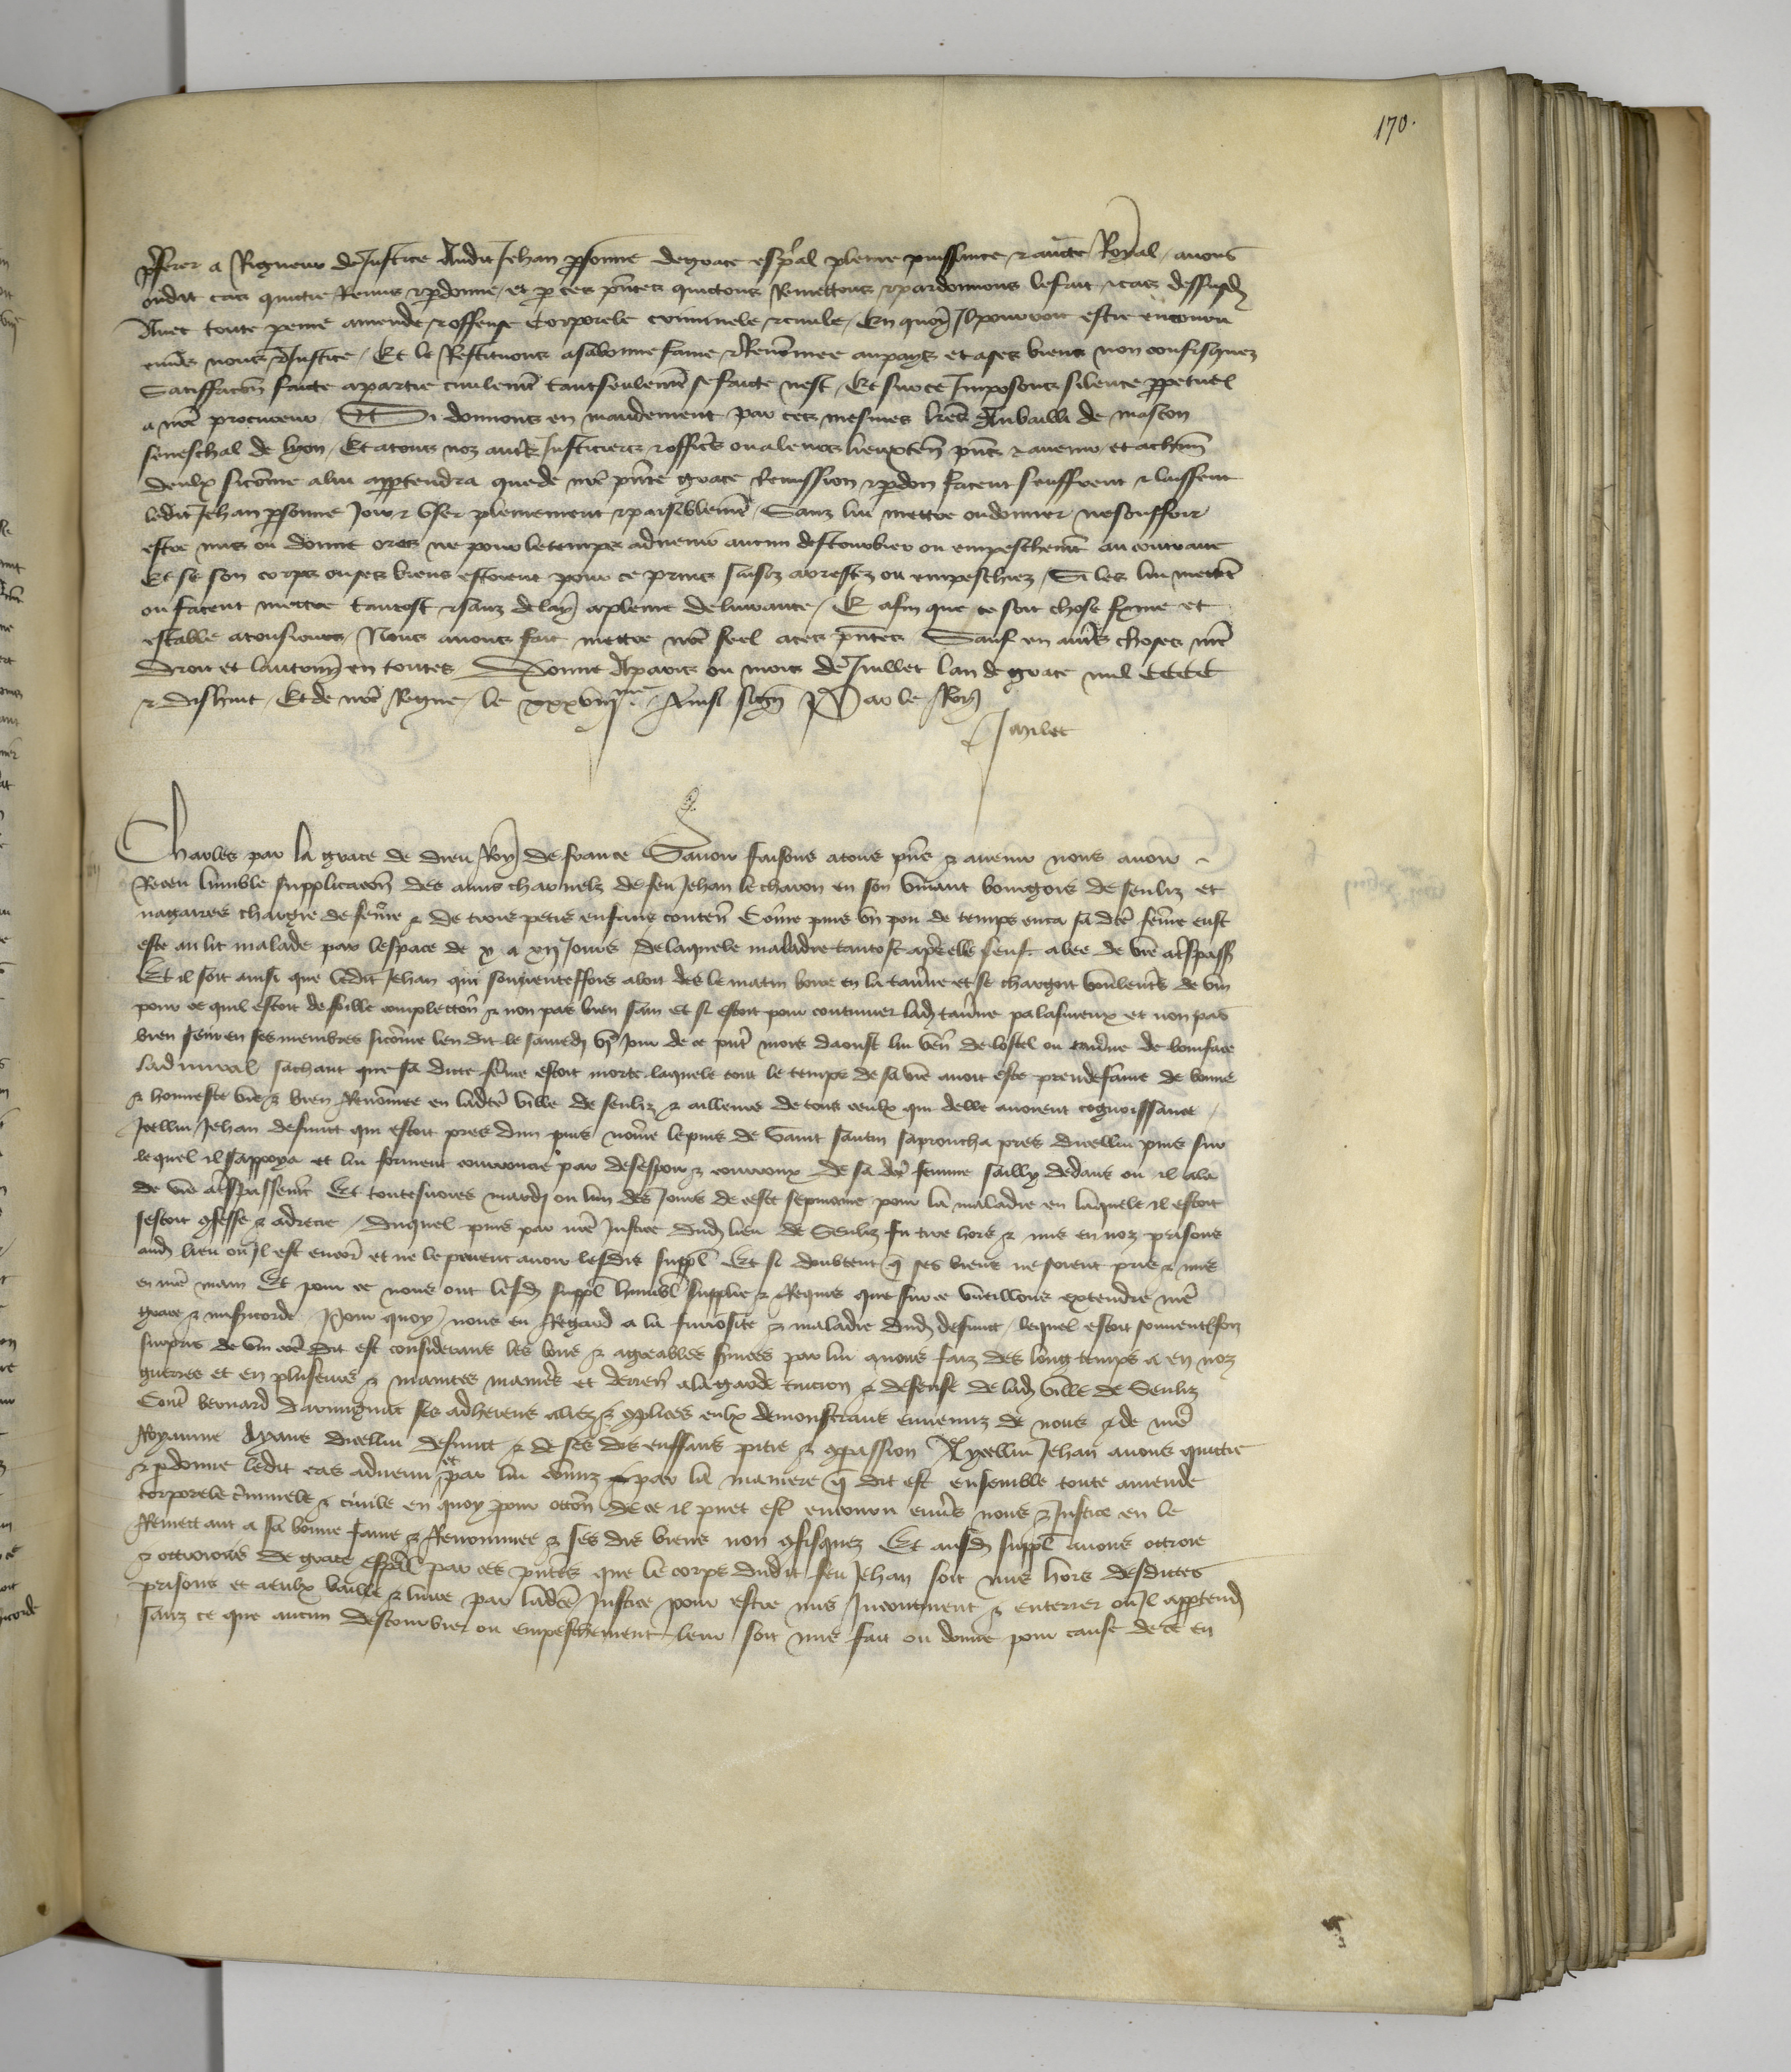 170.
pferer a Rigueur de Justice Audit Jehan psonne de grace espal pleine puissance & aucte Royal / avons
oudit cas quictie Remis & pdonne / et p ces pntes quictons Remettons & pardonnons le fait & cas dessusd
Avec toute peine amende & offense Corporele criminele & civile / En quoy Il pourroit estre encouru
envers nous & Justice / Et le Restituons a sa bonne fame & Renommee au pays et a ses biens non confisquez
Satisffaccon faicte a partie civilement tant seulement se faicte nest / Et sur ce Imposons silence ppetuel
a nre procureur / Et Si donnons en mandement par ces mesmes lres Au bailli de mascon
seneschal de lyon / Et a tous noz autres Justiciers & officers ou a leurs lieuxten pns & avenir / et a chun
deulx sicomme a lui apptendra que de nre pnte grace Remission & pdon facent seuffrent & laissent
ledit Jehan psonne Joir & User plainement & paisiblement / Sanz lui mettre ou donner ne souffrir
estre mis ou donne ores ne pour le temps advenir aucun destourbier ou empeschemt au contraire
Et se son corps ou ses biens estoient pour ce prins saisiz arrestez ou empeschez / Si les lui mettent
ou facent mettre tantost & sanz delay a pleine delivrance / Et afin que ce soit chose ferme et
estable a tousiours / Nous avons fait mettre nre seel a ces pntes Sauf en autres choses nre
droit et lautruy en toutes Donne A paris ou mois de Juillet lan de grace mil cccc
& dishuit / Et de nre Regne / le xxxviij me / Ainsi sign Par le Roy
Charles par la grace de dieu Roy de france Savoir faisons a tous pns & avenir nous avoir
Receu lumble supplicacon des amis charnelz de feu Jehan le charon en son vivant bourgois de senliz et
nagaires chargie de femme & de trois petis enfans conten Comme puis un pou de temps enca sa dte femme eust
este au lit malade par lespace de x a xij Jours de laquele maladie tantost apres elle feust alee de vie a trespass
Et il soit ainsi que ledit Jehan qui souventeffois aloit des le matin boire en la taverne et se chargoit voulentrs de vin
pour ce quil estoit de foible complection & non pas bien sain et si estoit pour continuer lad taverne palasineux et non pas
bien sein en ses membres sicomme len dit le samedi vje Jour de ce pnt mois daoust lui ven de lostel ou taverne de boniface
sachant que sa dicte femme estoit morte laquele tout le temps de sa vie avoit este preudefame de bonne
& honneste vie & bien Renommee en ladte ville de senliz & ailleurs de tous ceulx qui delle avoient cognoissance /
Icellui Jehan defunct qui estoit pres dun puis nomme le puis de saint sautin saproucha pres dicellui puis sur
lequel il sappoya et lui forment courroucie par desespoir & courroux de sa dte femme sailly dedans ou il ala
de vie a trespassemt Et toutesvoies mardi ou lun des Jours de ceste sepmaine pour la maladie en laquele il estoit
sestoit 9fesse & adrecie / Duquel puis par nre Justice dud lieu de Senliz fu tire hors & mis en noz prisons
aud lieu ou Il est encores et ne le peuent avoir lesdis suppl Et si doubtent q ses biens ne soient pris & mis
en nre main Et pour ce nous ont lesd suppl humbl supplie & Requis que sur ce vueillons extendre nre
grace & misericorde Pour quoy nous eu Regard a la furiosite & maladie dud defunct / lequel estoit souventeffoiz
surpris de vin come dit est considerans les bons & agreables services par lui a nous faiz des long temps a en noz
guerres et en pluseurs & maintes manieres et derren a la garde tuicion & defense de lad ville de Senliz
Contre bernard darmignac ses adherens aliez & 9plices eulx demonstrans ennemiz de nous & de nre
Royaume Ayans dicellui defunct & de ses dis enffans pitie & 9passion A ycellui Jehan avons quictie
& pdonne ledit cas advenu et par lui commiz par la maniere q dit est ensemble toute amende
corporele criminele & civile en quoy pour occon de ce il puet est encouru envers nous & Justice en le
Remettant a sa bonne fame & Renommee & ses dis biens non 9fisquez Et ausd suppl avons ottroie
& ottroions de grace espall par ces pntes que le corps dudit feu Jehan soit mis hors desdictes
prisons et a eulx baille & livre par ladte Justice pour estre mis Incontinent & enterrer ou Il apptend
sanz ce que aucun destourbier ou empeschement leur soit mis fait ou donne pour cause de ce en